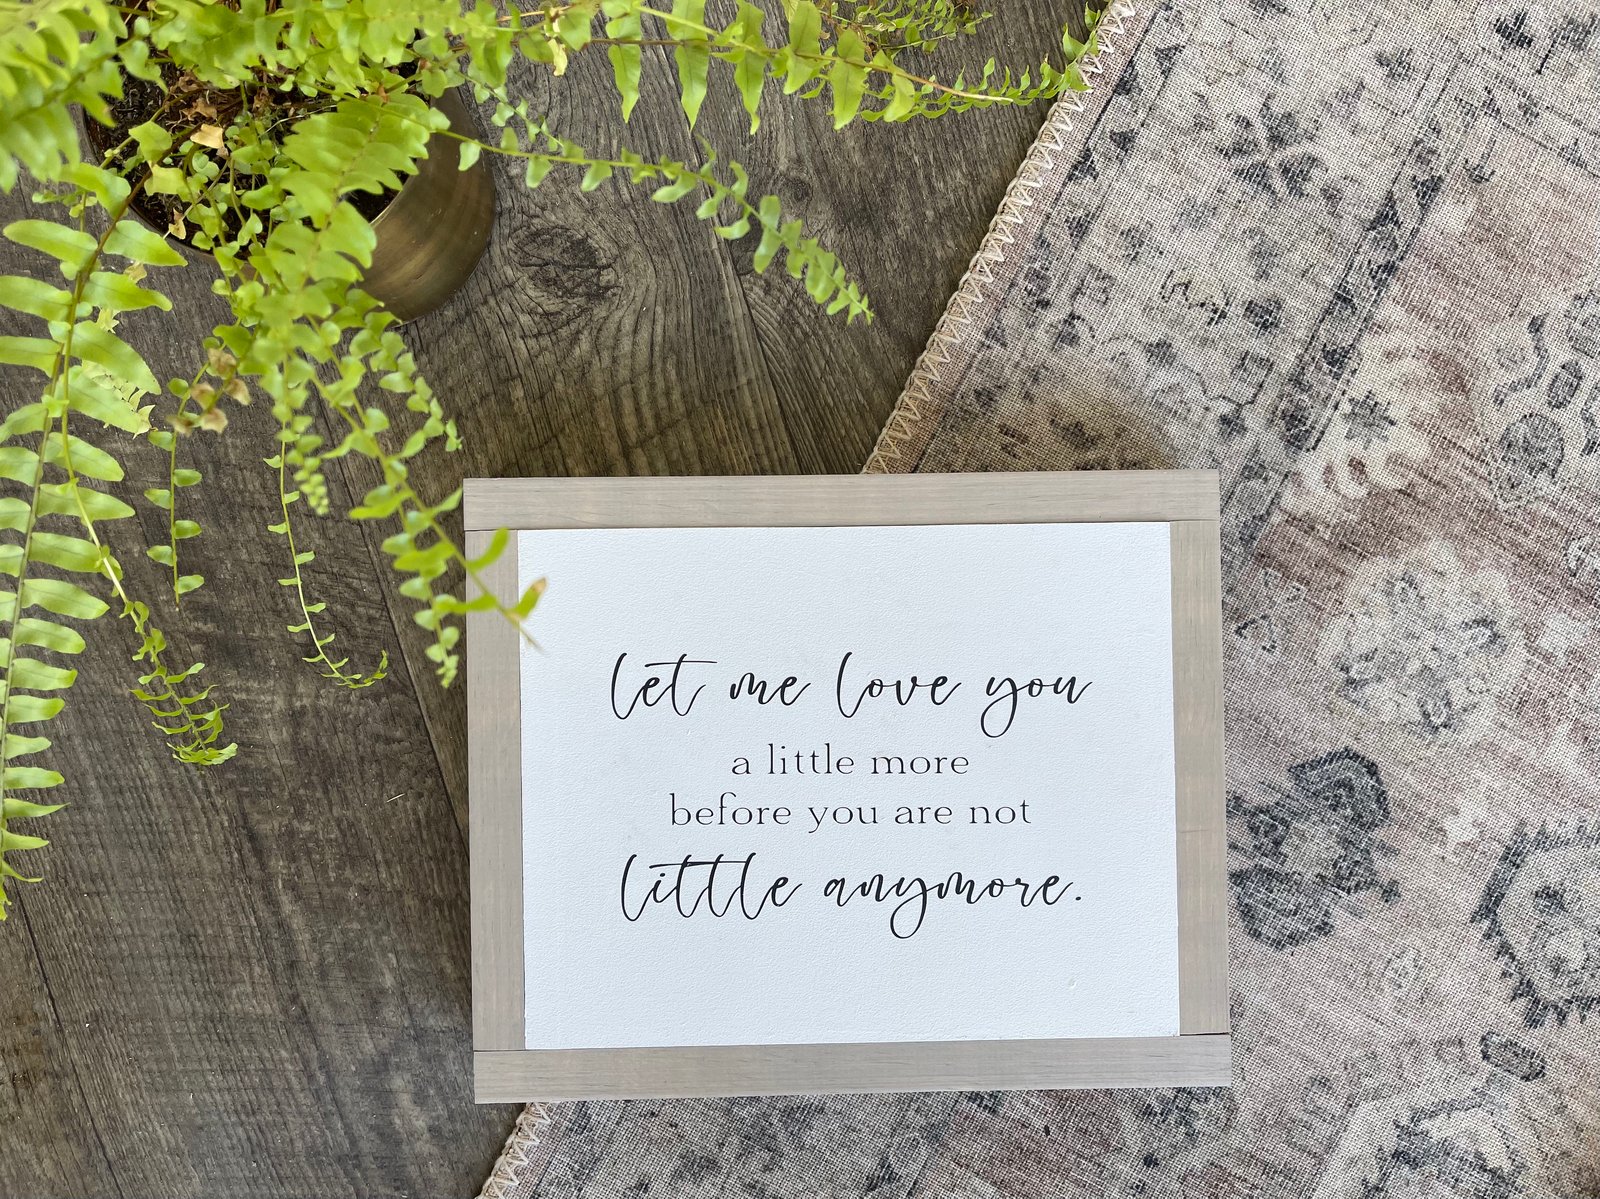 let me love you
a little more
before you are not
little anymore.